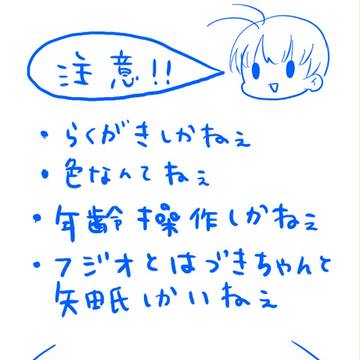 注意!!
・らくがきしかねぇ
・色なんてねぇ
・年齢操作しかねぇ
・フジオとはづきちゃんと
矢田氏しかいねぇ